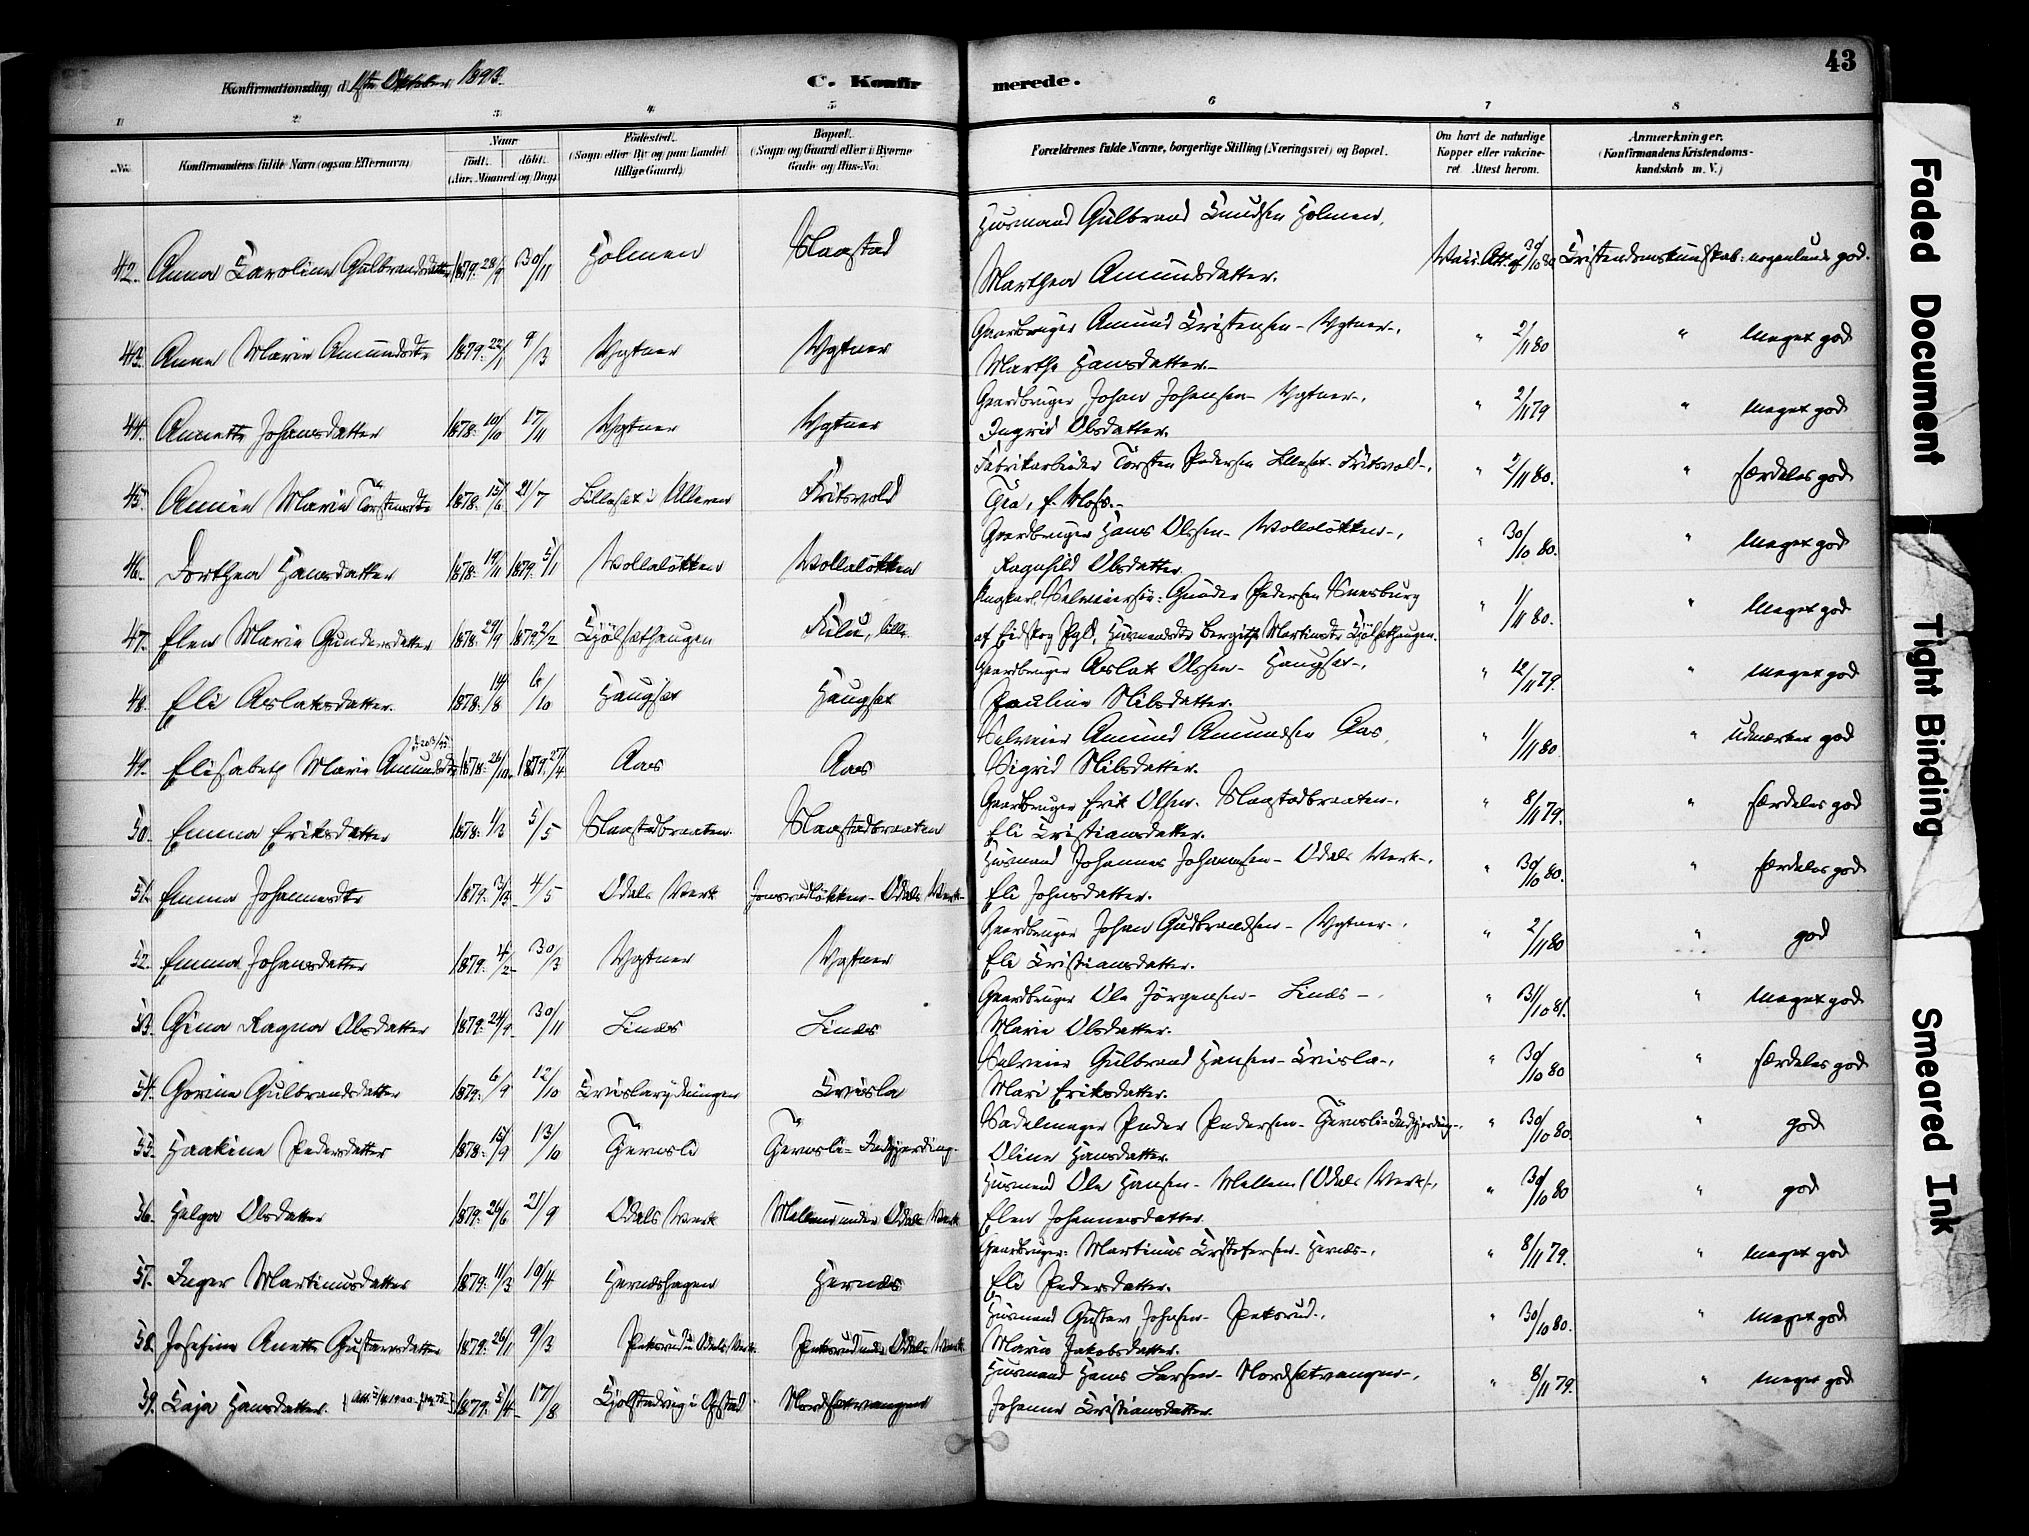 43
Konfirmationsdag, d. 1ste Oktober 1893.
C. Konfirmerede.
1 2 3 4 5 6 7 8
No. Konfirmandens fulde Navn (ogsaa Efternavn). Naar født. døbt. (Aar, Maaned og Dag). Fødested. (Sogn eller By og paa Landet tillige Gaard). Bopæl. (Sogn og Gaard eller i Byerne Gade og Hus-No. Forældrenes fulde Navne, borgerlige Stilling (Næringsvei) og Bopæl. Om havt de naturlige Kopper eller vaccineret. Attest herom. Anmærkninger. (Konfirmandens Kristendomskundskab m. V.)
42. Anna Karoline Gulbrandsdatter 1879 28/9 30/11 Holmen Slaastad Husmand Gulbrand Knudsen Holmen, Marthea Amundsdatter. Vacc. Att. af 30/10 80 Kristendomskundskab: nogenlunde god.
43. Anna Marie Amundsdtr 1879 22/1 9/3 Ygtner Ygtner Gaardbruger Amund Kristensen - Ygtner -, Marthe Hansdatter. " 2/11 80 " Meget god
44. Annette Johansdatter 1878 10/10 17/11 Ygtner Ygtner Gaardbruger Johan Johansen - Ygtner -, Ingrid Olsdatter. " 2/11 79 " meget god
45. Marie Torstensdtr 1878 15/6 21/7 i Ulleren Fritsvold Fabrikarbeider Torsten Pedersen Fritsvold -, " 2/11 80. " særdeles god
46. Dorthea Hansdatter 1878 19/11 1879 5/1 Vollaløkken Vollaløkken Gaardbruger Hans Olssen - Vollaløkken -, Ragnhild Olsdatter " 30/10 80. " Meget god
47. Elen Marie Gundersdatter 1878 29/9 1879 2/2 Kjølsethaugen lille Ungkarl, Selveiersøn: Gunder Pedersen af Eidskog Pgld, Husmandsdtr Bergithe Martinsdtr Kjølsethaugen. " 1/11 80. " Meget god
48. Eli Aslaksdatter. 1878 14/8 6/10 Haugset Haugset Gaardbruger Aslak Olssen - Haugset -, Pauline Nilsdatter. " 12/11 79. " meget god
49. Elisabeth Marie Amundsdtr 1878 26/10 1879 27/4 Aas Aas Selveier Amund Amundsen Aas, Sigrid Nilsdatter. " 1/11 80 " Udmærket god
50. Emma Eriksdatter 1878 5/5 Slaastadbraaten Slaastadbraaten Gaardbruger Erik Olsen - Slaastadbraaten -, Eli Kristiansdatter. " 8/11 79. " særdeles god
51. Emma Johannesdtr 1879 3/3 4/5 Odals Værk Jonsrudløkken - Odals Værk - Husmand Johannes Johannesen - Odals Værk -, Eli Johnsdatter. " 30/10 80. " særdeles god
52. Emma Johansdatter 1879 4/2 30/3 Ygtner Ygtner Gaardbruger Johan Gudbrandsen - Ygtner -, Eli Kristiansdatter. " 2/11 80 " god
53. Gina Ragna Olsdatter 1879 24/9 30/11 Linæs Linæs Gaardbruger Ole Jørgensen - Linæs -, Marie Olsdatter. " 31/10 81. " meget god
54. Gorine Gulbrandsdatter 1879 6/9 12/10 Kvislarydningen Kvisla Selveier Gulbrand Hansen - Kvisla -, Mari Eriksdatter. " 30/10 80 " særdeles god
55. Haakine Pedersdatter 1878 15/9 13/10 Tjernsli Tjernsli - Indgjerding - Sadelmager Peder Pedersen - Tjernsli - Indgjerding -, Oline Hansdatter. " 30/10 80. " god
56. Helga Olsdatter 1879 26/6 21/9 Odals Værk Mellem under Odals Værk Husmand Ole Hansen - Mellem (Odals Værk) -, Elen Johannesdatter. " 30/10 80 " god
57. Inger Martinusdatter 1879 11/3 10/4 Hernæshagen Hernæs Gaardbruger Martinus Kristofersen - Hernæs -, Eli Pedersdatter. " 8/11 79. " meget god
58. Josefine Anette Gustavsdatter 1879 26/1 9/3 Peksrud u. Odals Værk Peksrud under Odals Værk Husmand Gustav Johnsen - Peksrud -, Marie Jakobsdatter. " 30/10 80. " meget god
59. Kaja Hansdatter. 1879 5/4 17/8 Kjølstadvig i Opstad Nordsetvangen Husmand Hans Larsen - Nordsetvangen -, Johanne Kristiansdatter. " 8/11 79. " meget god
Faded Document
Tight Binding
Smeared Ink